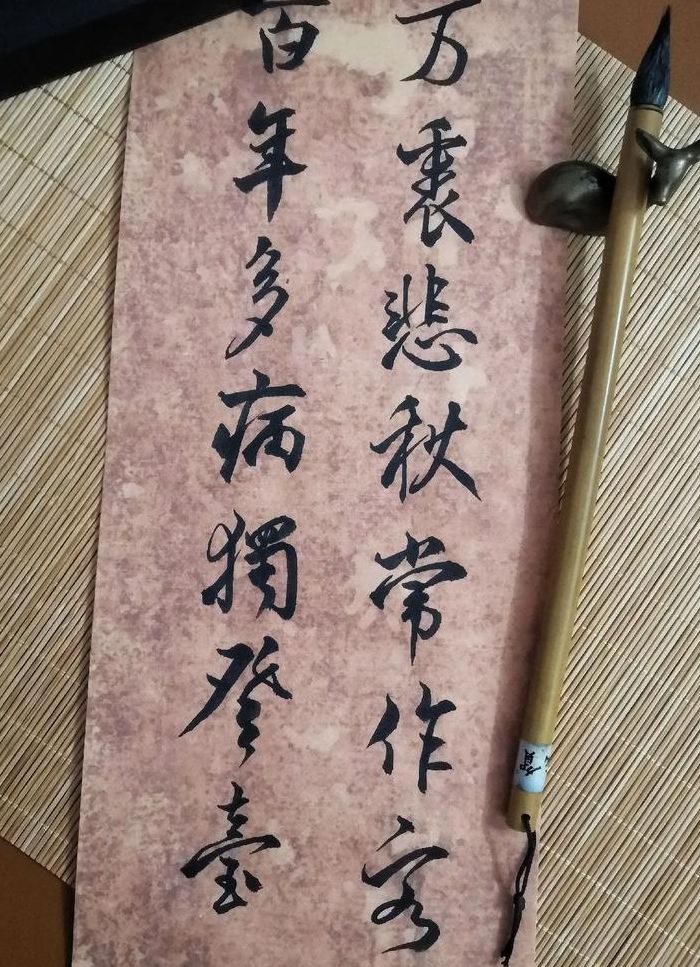 万裏悲秋常作客
百年多病獨登臺